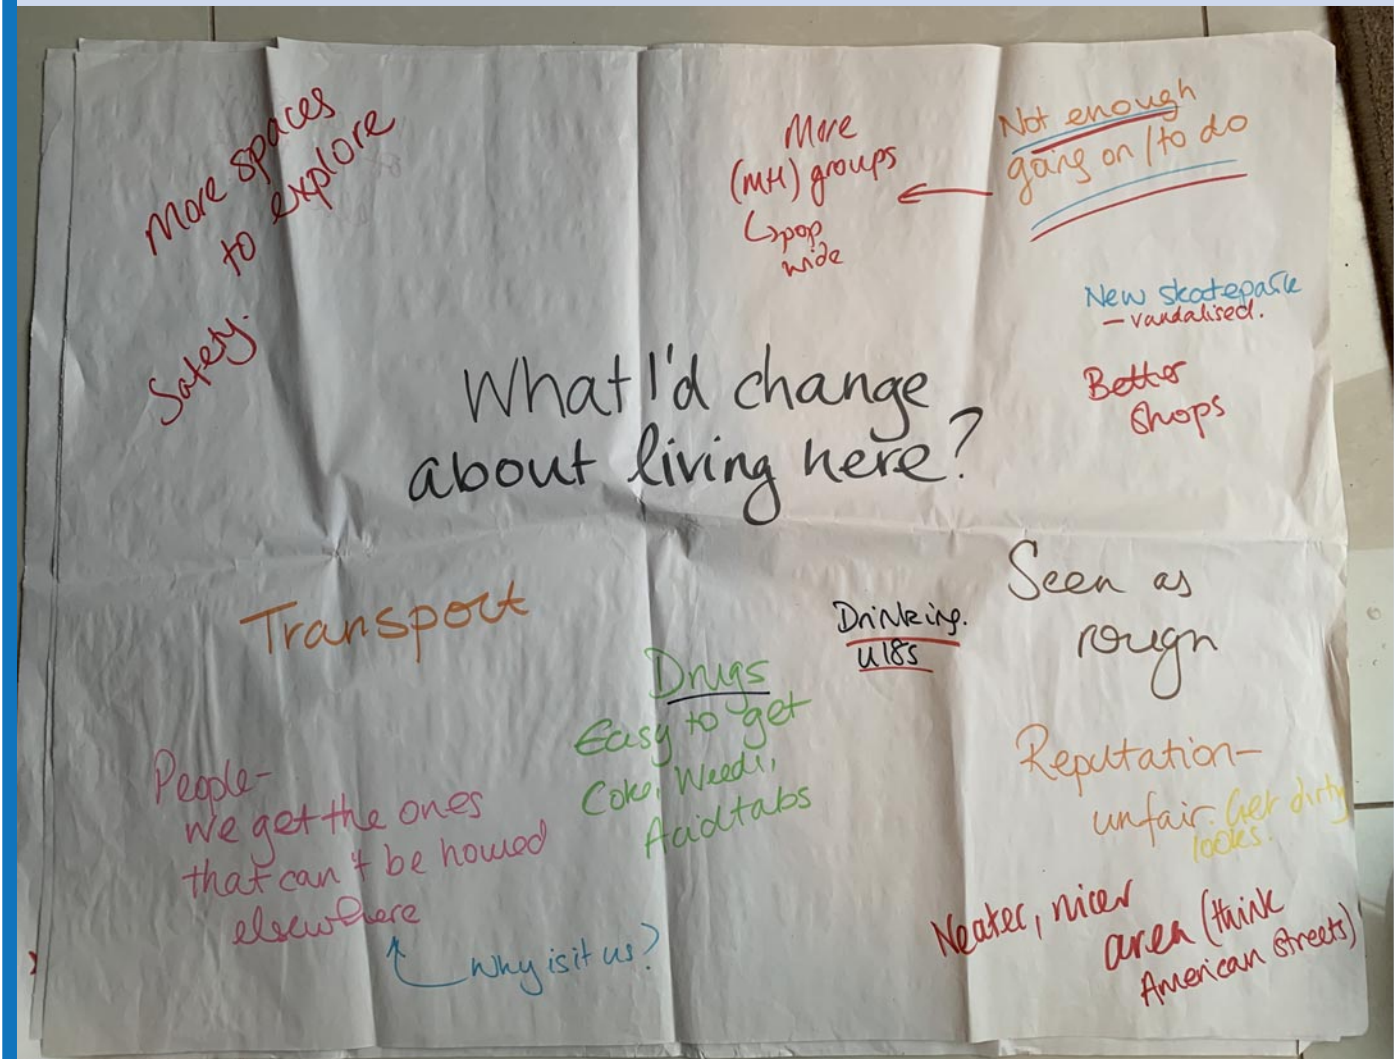 More spaces
to explore
Safety.
More
(MH) groups
↳pop
wide
Not enough
going on / to do
New skatepark
- vandalised.
Better
shops
What I'd change
about living here?
Transport
Drinking.
U18s
Seen as
rough
Drugs
Easy to get
Coke, Weed,
Acid tabs
Reputation-
unfair. Get dirty
looks.
People-
we get the ones
that can't be housed
elsewhere
Why is it us?
Neater, nicer
area (think
American streets)